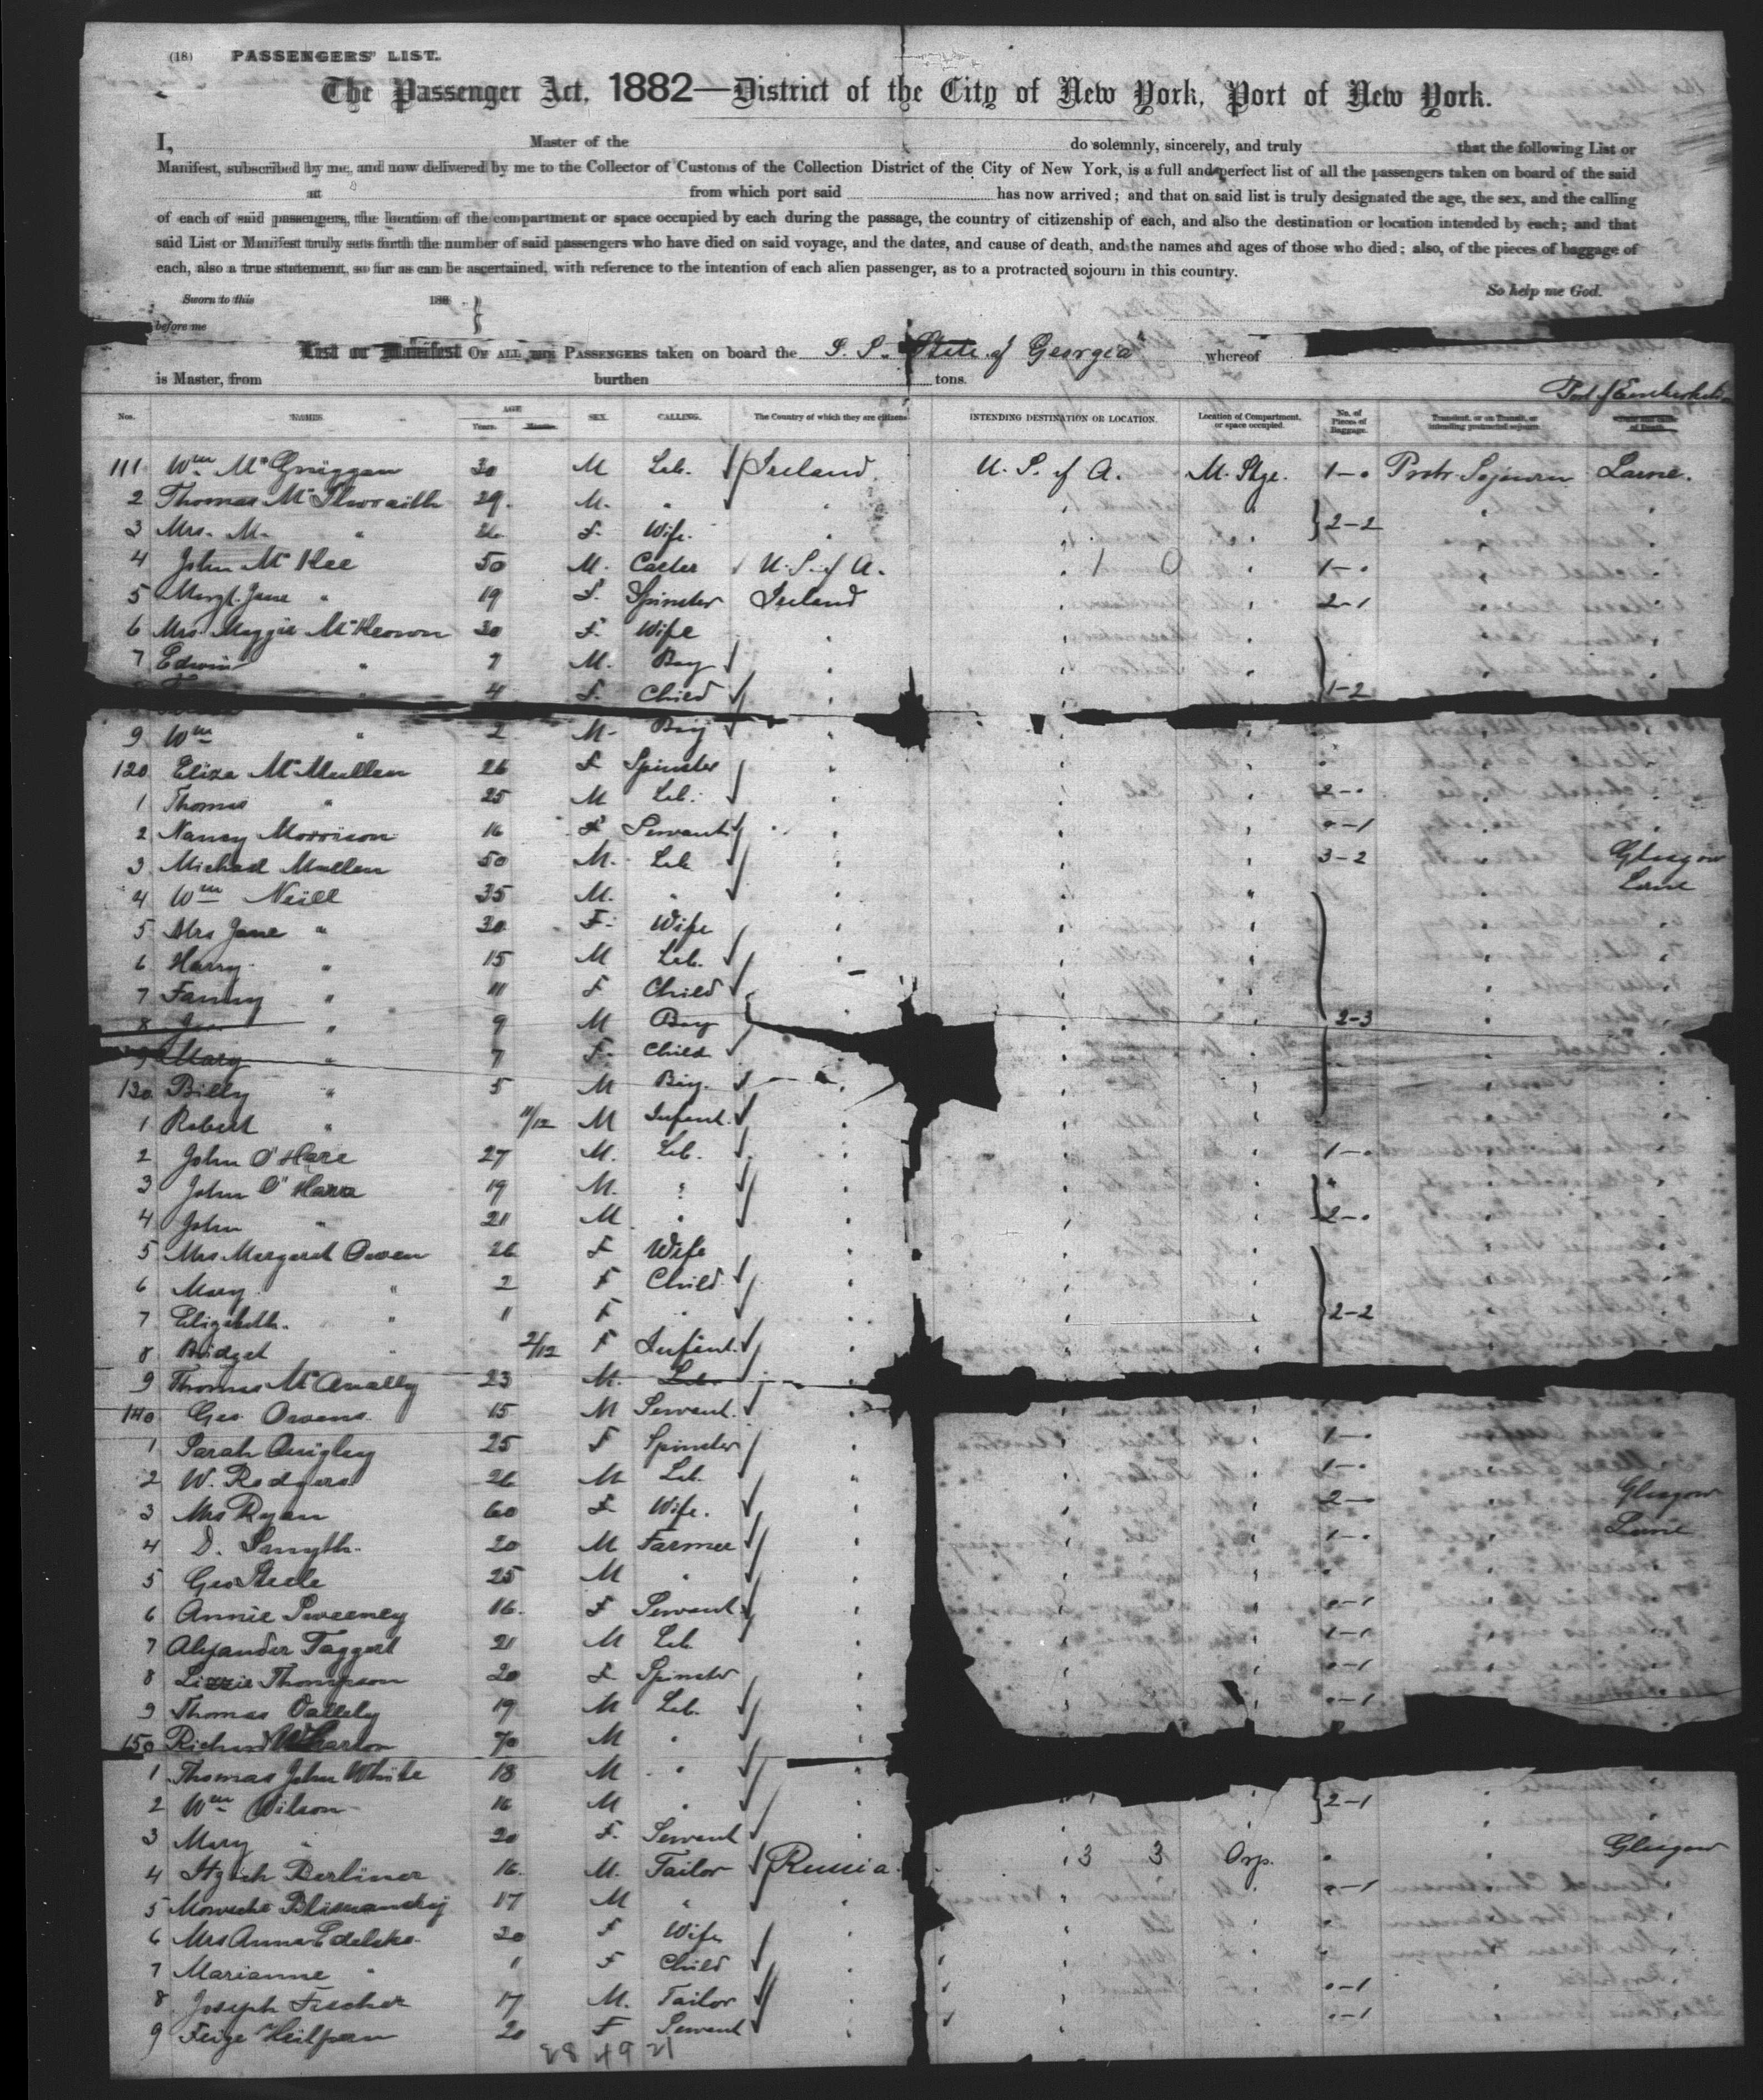 (18) PASSENGERS' LIST.
The Passenger Act, 1882—District of the City of New York, Port of New York.
I, Master of the do solemnly, sincerely, and truly that the following List or
Manifest, subscribed by me, and now delivered by me to the Collector of Customs of the Collection District of the City of New York, is a full and perfect list of all the passengers taken on board of the said
at from which port said has now arrived; and that on said list is truly designated the age, the sex, and the calling
of each of said passengers, the location of the compartment or space occupied by each during the passage, the country of citizenship of each, and also the destination or location intended by each; and that
said List or Manifest truly sets forth the number of said passengers who have died on said voyage, and the dates, and cause of death, and the names and ages of those who died; also, of the pieces of baggage of
each, also a true statement, so far as can be ascertained, with reference to the intention of each alien passenger, as to a protracted sojourn in this country.
So help me God.
Sworn to this 188
before me
List or Manifest OF ALL THE PASSENGERS taken on board the S. S. State of Georgia whereof
is Master, from burthen tons.
Port of Embarkation
Nos. NAMES AGE Years. Months. SEX. CALLING. The Country of which they are citizens INTENDING DESTINATION OR LOCATION. Location of Compartment, or space occupied. No. of Pieces of Baggage. Transient, or in Transit, or intending protracted sojourn
111 Wm 30 M Lab. Ireland U. S. of A. M. Stge. 1-0 Protr Sojourn Larne.
2 Thomas 29 M. "
3 Mrs. M. " F. Wife. " 2-2
4 John McKee 50 M. Carter U. S. of A. 1 0 1-0
5 Margt. Jane " 19 F. Spinster Ireland 2-1
6 Mrs Maggie McKeown 30 F. Wife "
7 Edwin " 7 M. Boy "
" 4 F. Child " 1-2
9 Wm " 2 M. Boy "
120 Eliza McMullen 26 F Spinster "
1 Thomas " 25 M Lab. " 2-0
2 Nancy Morrison 16 F Servant " 0-1
3 Michael Mullen 50 M. Lab " 3-2 Glasgow
4 Wm Neill 35 M. " " Larne
5 Mrs Jane " 30 F. Wife "
6 Harry " 15 M Lab. "
7 Fanny " 11 F Child "
8 " 9 M Boy 2-3
9 Mary " 7 F. Child
130 Billy " 5 M Boy.
1 Robert " 11/12 M Infant.
2 John O'Hare 27 M. Lab. 1-0
3 John O'Hara 19 M. " "
4 John " 21 M " 2-0
5 Mrs Margaret Owen 26 F Wife
6 Mary " 2 F Child
7 Elizabeth " 1 F " 2-2
8 Bridget " 2/12 F Infant
9 Thomas McAnally 23 M. Lab.
140 Geo. Owens 15 M Servant.
1 Sarah Quigley 25 F Spinster 1-0
2 W. Rodgers 26 M Lab. 1-0
3 Mrs Ryan 60 F Wife. 2-0 Glasgow
4 D. Smyth 20 M Farmer 1-0 Larne
5 Geo Steele 25 M " "
6 Annie Sweeney 16 F Servant 0-1
7 Alexander Taggert 21 M Lab 1-1
8 Lizzie Thompson 20 F Spinster 0-1
9 Thomas 19 M Lab. 0-1
150 Richard Wharton 70 M "
1 Thomas John White 18 M "
2 Wm Wilson 16 M " 2-1
3 Mary " 20 F. Servant "
4 Itzich Berliner 16 M. Tailor Russia 3 3 Orp. " Glasgow
5 17 M " 0-1
6 Mrs Anna 20 F Wife
7 Marianne " 1 F Child
8 Joseph Fischer 17 M. Tailor 0-1
9 Feige Heilpern 20 F Servant 0-1